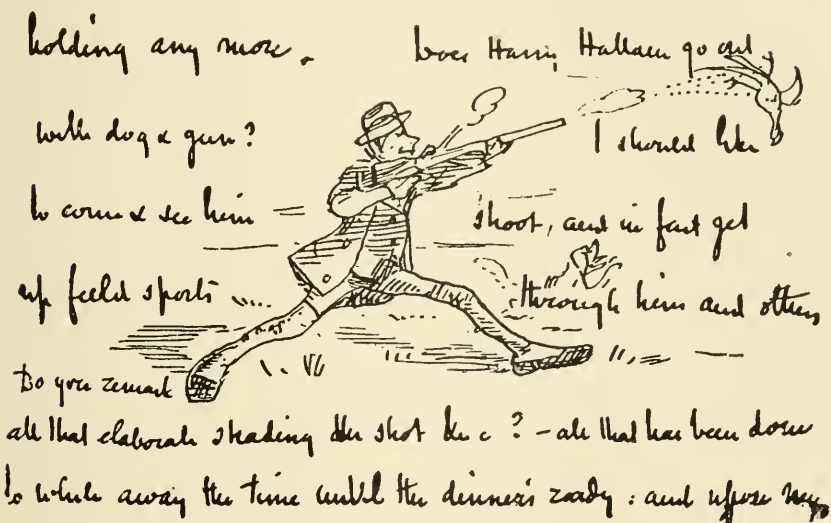 holding any more. Does Harry Hallam go out
with dog & gun? I should like
to come & see him shoot, and in fact get
up field sports through him and others
Do you remark
all that elaborate shading the shot &c? - all that has been done
to while away the time until the dinner's ready: and upon my